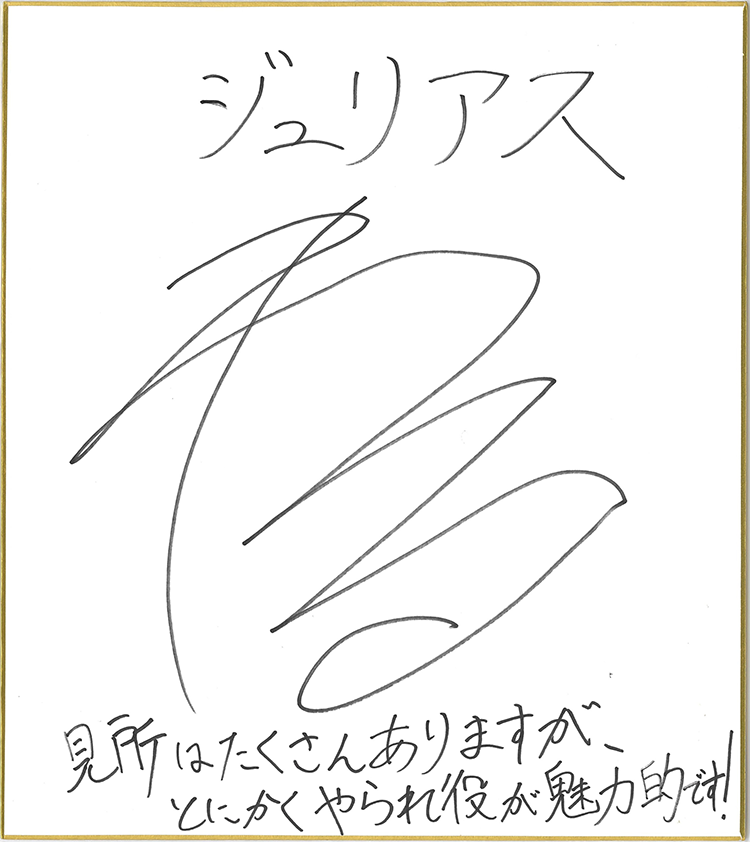 ジュリアス
見所はたくさんありますが、
とにかくやられ役が魅力的です!